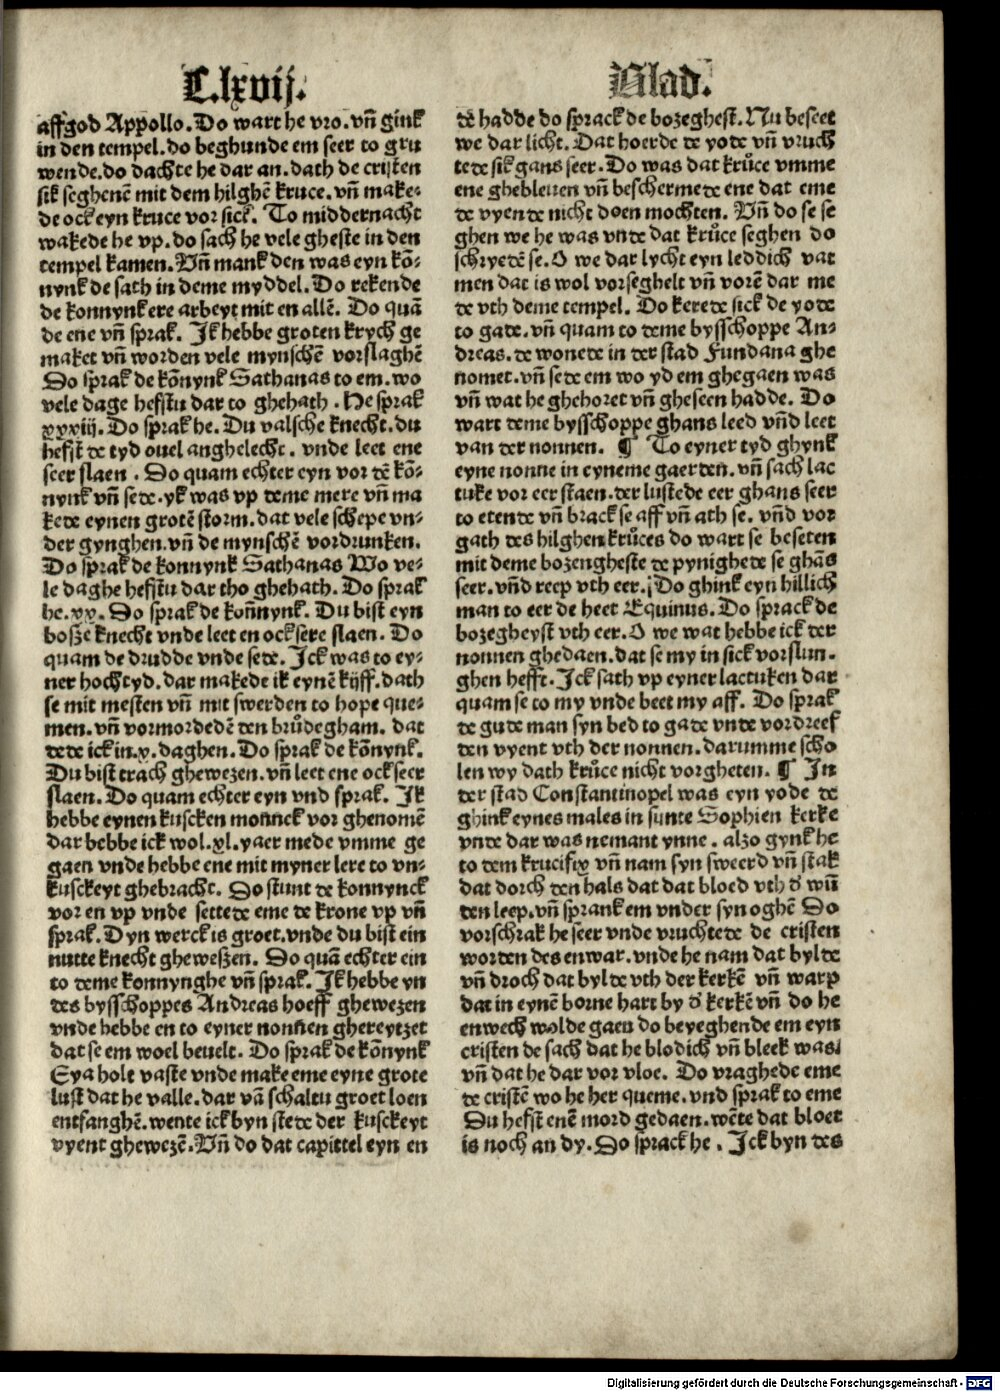 C.lxvij. Blad.
affgod Appollo. Do wart he vro. vñ gink
in den tempel. do beghunde em seer to gru
wende. do dachte he dar an. dath de cristen
sik seghenē mit dem hilghē kruce. vñ make-
de ock eyn kruce vor sick. To middernacht
wakede he vp. do sach he vele gheste in den
tempel kamen. Vñ mank den was eyn kō-
nynk de sath in deme myddel. Do rekende
de konnynk ere arbeyt mit en allē. Do quā
de ene vñ sprak. Jk hebbe groten krych ge
maket vñ worden vele mynschē vorslaghē
Do sprak de kōnynk Sathanas to em. wo
vele dage hefstu dar to ghehath. He sprak
xxxiij. Do sprak he. Du valsche knecht. du
hefst de tyd ouel anghelecht. vnde leet ene
seer slaen. Do quam echter eyn vor dē kō-
nynk vñ sede. yk was vp deme mere vñ ma
kede eynen grotē storm. dat vele schepe vn-
der gynghen. vñ de mynschē vordrunken.
Do sprak de konnynk Sathanas Wo ve-
le daghe hefstu dar tho ghehath. Do sprak
he. xx. Do sprak de koñnynk. Du bist eyn
bosze knecht vnde leet en ock sere slaen. Do
quam de drudde vnde sede. Jck was to ey-
ner hochtyd. dar makede ik eynē kijff. dath
se mit mesten vñ mit swerden to hope que-
men. vñ vormordedē den brůdegham. dat
dede ick in. x. daghen. Do sprak de kōnynk.
Du bist trach ghewezen. vñ leet ene ock seer
slaen. Do quam echter eyn vnd sprak. Jk
hebbe eynen kuscken moñnck vor ghenomē
dar hebbe ick wol. xl. yaer mede vmme ge
gaen vnde hebbe ene mit myner lere to vn-
kusckeyt ghebracht. Do stunt de konnynck
vor en vp vnde settede eme de krone vp vñ
sprak. Dyn werck is groet. vnde du bist ein
nutte knecht gheweszen. Do quā echter ein
to deme konnynghe vñ sprak. Jk hebbe yn
des bysschoppes Andreas hoeff ghewezen
vnde hebbe en to eyner nonñen ghereytzet
dat se em woel beuelt. Do sprak de kōnynk
Eya holt vaste vnde make eme eyne grote
lust dat he valle. dar vā schaltu groet loen
entfanghē. wente ick byn stede der kusckeyt
vyent ghewezē. Vñ do dat capittel eyn en
dē hadde do sprack de bozeghest. Nu beseet
we dar licht. Dat hoerde de yode vñ vruch
tede sik gans seer. Do was dat krůce vmme
ene ghebleuen vñ beschermede ene dat eme
de vyende nicht doen mochten. Vñ do se se
ghen we he was vnde dat krůce seghen do
schryedē se. O we dar lycht eyn leddich vat
men dat is wol vorseghelt vñ vorē dar me
de vth deme tempel. Do kerede sick de yode
to gade. vñ quam to deme bysschoppe An-
dreas. de wonede in der stad Fundana ghe
nomet. vñ sede em wo yd em ghegaen was
vñ wat he ghehoret vñ gheseen hadde. Do
wart deme bysschoppe ghans leed vñd leet
van der nonnen. ¶ To eyner tyd ghynk
eyne nonne in eyneme gaerden. vñ sach lac
tuke vor eer staen. der lustede eer ghans seer
to etende vñ brack se aff vñ ath se. vñd vor
gath des hilghen krůces do wart se beseten
mit deme bozengheste de pynighede se ghās
seer. vñd reep vth eer. Do ghink eyn hillich
man to eer de heet Equinus. Do sprack de
bozegheyst vth eer. O we wat hebbe ick der
nonnen ghedaen. dat se my in sick vorslun-
ghen hefft. Jck sath vp eyner lactuken dar
quam se to my vnde beet my aff. Do sprak
de gude man syn bed to gade vnde vordreef
den vyent vth der nonnen. darumme scho
len wy dath krůce nicht vorgheten. ¶ Jn
der stad Constantinopel was eyn yode de
ghink eynes males in sunte Sophien kerke
vnde dar was nemant ynne. alzo gynk he
to dem krucifix vñ nam syn sweerd vñ stak
dat dorch den hals dat dat bloed vth ď wū
den leep. vñ sprank em vnder syn oghē Do
vorschrak he seer vnde vruchtede de cristen
worden des enwar. vnde he nam dat bylde
vñ droch dat bylde vth der kerkē vñ warp
dat in eynē borne hart by ď kerkē vñ do he
enwech wolde gaen do beyeghende em eyn
cristen de sach dat he blodich vñ bleek was.
vñ dat he dar vor vloe. Do vraghede eme
de cristē wo he her queme. vnd sprak to eme
Du hefst enē mord gedaen. wēte dat bloet
is noch an dy. Do sprack he. Jck byn des
Digitalisierung gefördert durch die Deutsche Forschungsgemeinschaft - DFG